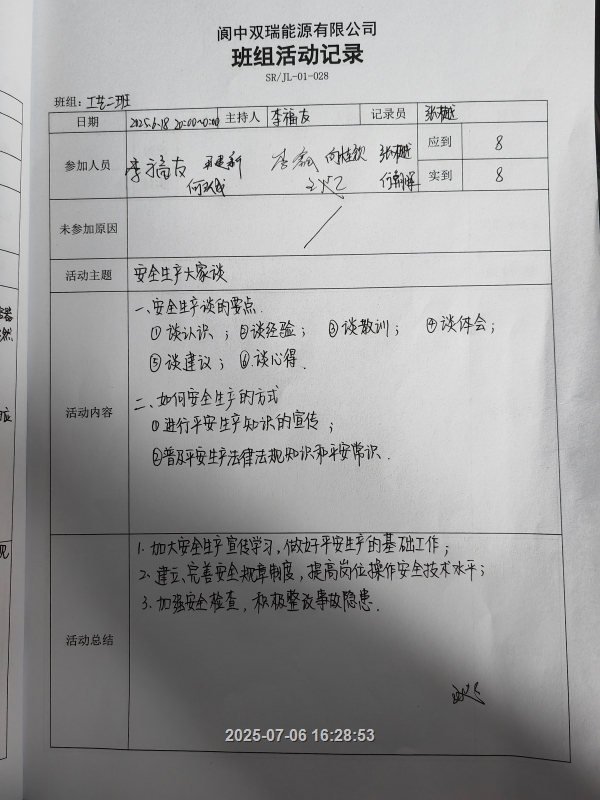 阆中双瑞能源有限公司
班组活动记录
SR/JL-01-028
班组：工艺二班
日期 2025.6.18 20:00~0:00 主持人 李福友 记录员
参加人员 李福友 李 应到 8
何 实到 8
未参加原因
活动主题 安全生产大家谈
活动内容
一、安全生产谈的要点.
①谈认识；②谈经验；③谈教训；④谈体会；
⑤谈建议；⑥谈心得.
二、如何安全生产的方式
①进行平安生产知识的宣传；
②普及平安生产法律法规知识和平安常识.
活动总结
1. 加大安全生产宣传学习，做好平安生产的基础工作；
2. 建立、完善安全规章制度，提高岗位操作安全技术水平；
3. 加强安全检查，积极整改事故隐患.
2025-07-06 16:28:53